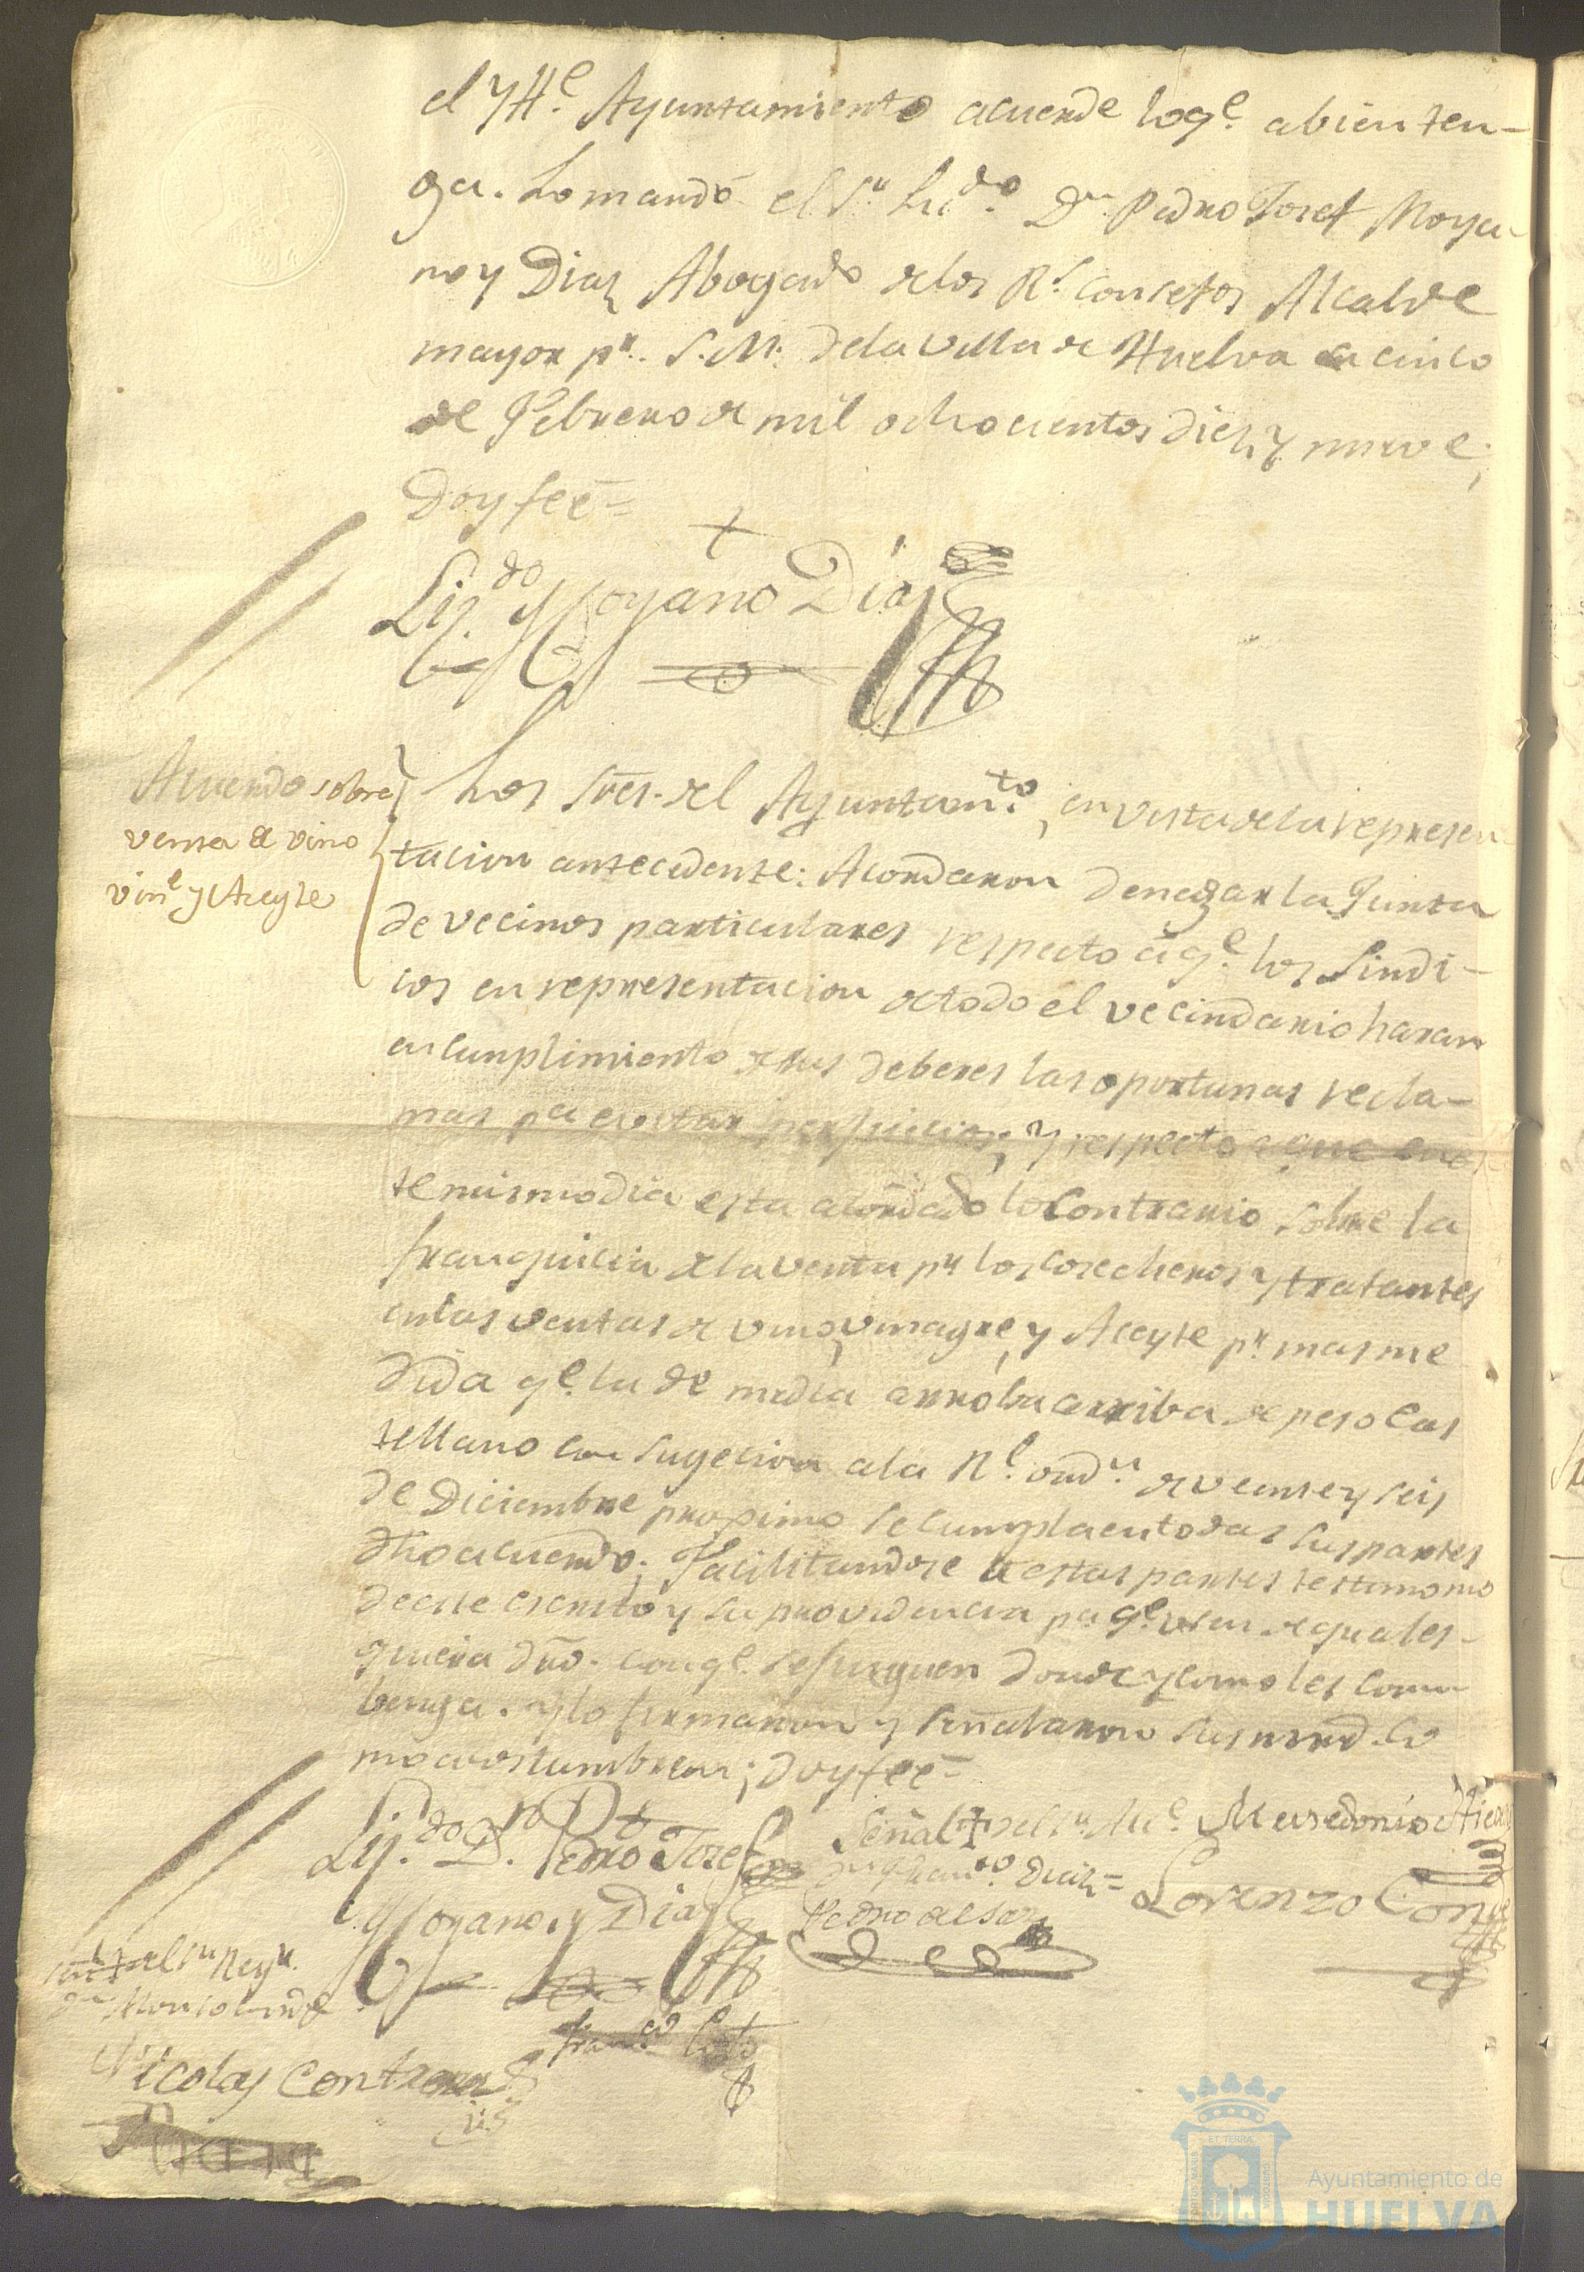 el Ytt.e Ayuntamiento acuerde loq.e abien ten-
ga. Lomandó el S.r Lic.do D.n Pedro Josef Moya-
no y Diaz Abogado delos R.s Consejos Alcalde
mayor p.r S.M. dela Villa de Huelva a cinco
de Febrero de mil ochocientos diez y nueve;
Doy feé=
Liz.do Moyano Diaz
Acuerdo sobre
venta de vino
vin.e y Aceyte
Los Sres. del Ayuntam.to, en vista dela represen-
tacion antecedente: Acordaron denegar la Junta
de vecinos particulares respecto aq.e los Sindi-
cos en representacion de todo el vecindario haran
en cumplimiento de sus deberes las oportunas recla-
mas p.a evitar perjuicios; y respecto a que en es
te mismo dia esta acordado lo contrario sobre la
franquicia de la venta p.r los cosecheros y tratantes
en las ventas de vino, vinagre, y Aceyte p.r mas me
dida q.e la de media arroba arriba de peso cas
tellano con sugecion a la R.l ord.n de veinte y seis
de Diciembre proximo se cumpla en todas sus partes
dho acuerdo. Facilitandose a estas partes testimonio
de este escrito y su providencia pa q.e usen de quales-
quiera dro. con q.e se juzguen donde y como les com-
benga. Y lo firmaron y señalaron sus mrd. co
mo acostumbran; doy feé=
Liz.do D.n Pedro Josef
Moyano y Diaz
Señal + del S.r
Diaz=
Pedro de
Mersedonio
Lorenzo Conde
Señal + del S.r Reg.r
Fran.co Coto
Nicolas Contreras
Ayuntamiento de
HUELVA